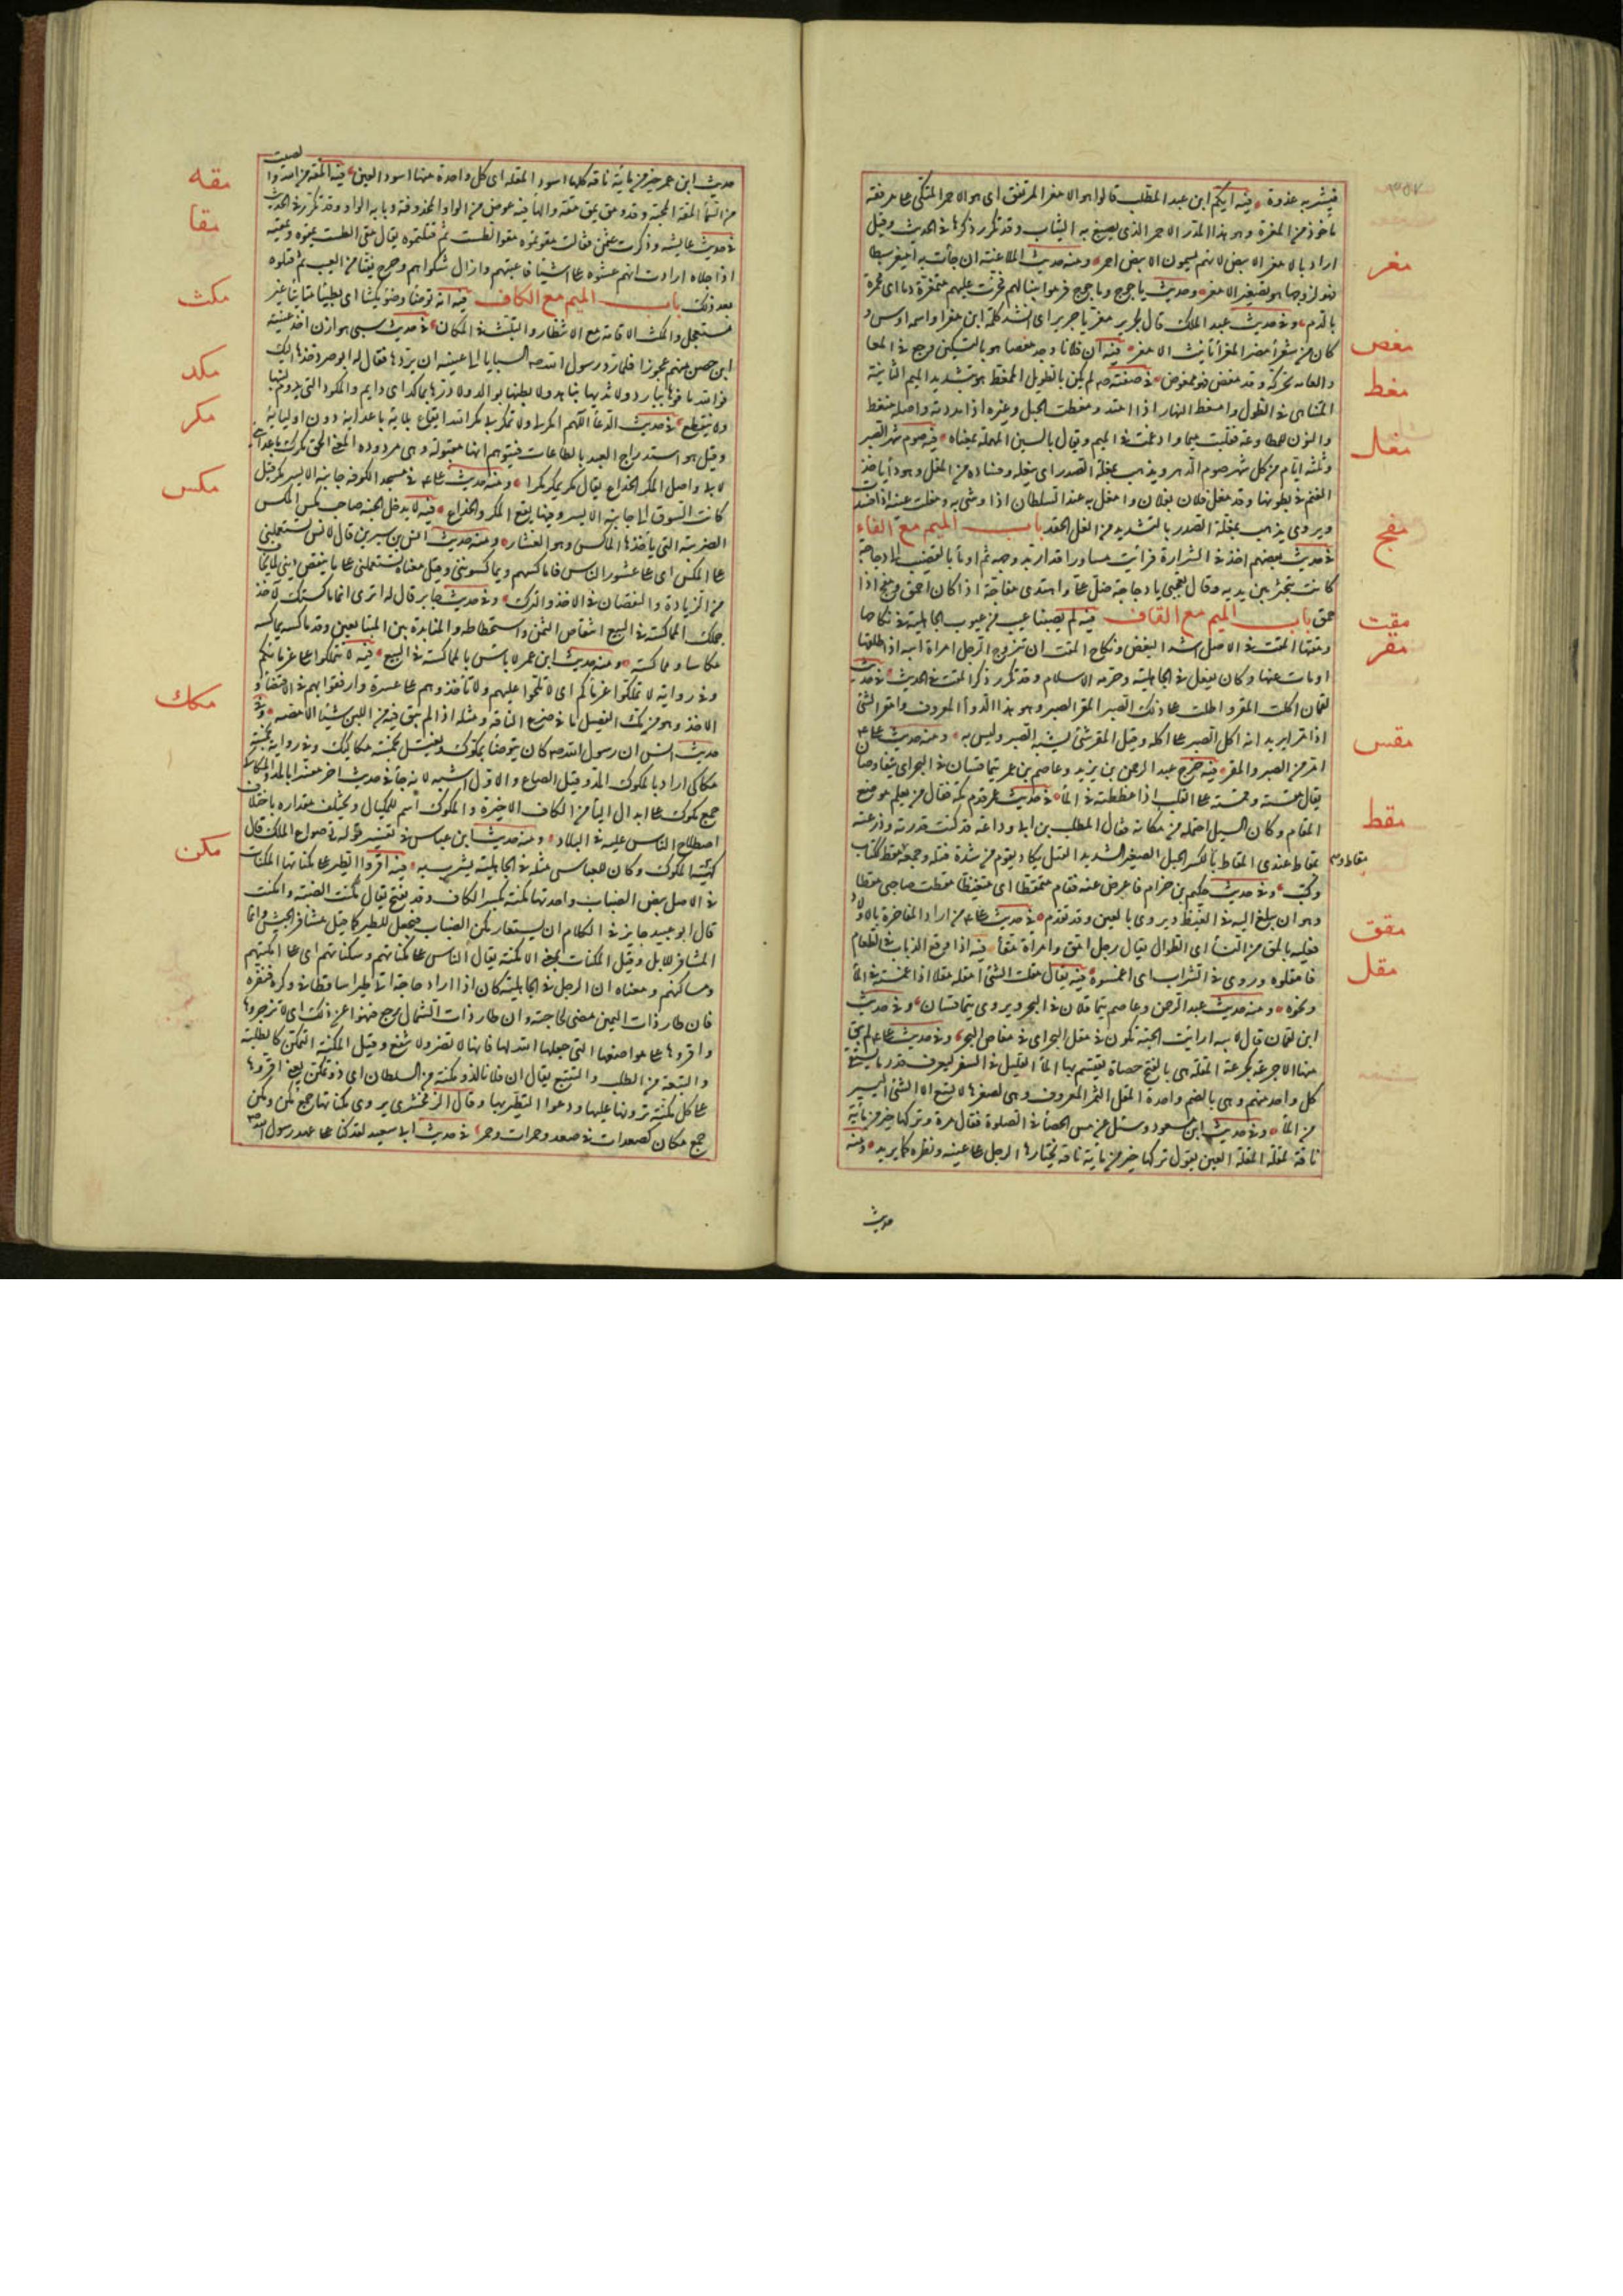 فيشربه عذوة فيه ايكم ابن عبد المطلب قالوا هو الامغر المرتفق اى هو الاحمر المتكى على مرفقه
ماخوذ من المغرة وهو هذا المدر الاحمر الذى يصبغ به الثياب وقد تكرر ذكرها فى الحديث وقيل
اراد بالامغر الابيض لانهم يسمون الابيض احمر ومنه حديث الملاعنة ان جأت به اميغر سبطا
مغر
فهو لزوجها هو تصغير الامغر وحديث ياجوج وماجوج فرموا بنبالهم فخرت عليهم متمغرة دما اى محمرة
بالدم وفى حديث عبد الملك قال لجرير مغر يا جرير اى انشد كلمة ابن مغرا واسمه اوس و
كان من شعرأ مضر المغرأ تانيث الامغر فيه ان فلانا وجد مغصا هو بالتسكين وجع فى المعا
مغص
والعامة تحركه وقد مغص فهو ممغوص فى صفته صم لم يكن بالطويل الممغط هو بتشديد الميم الثانية
مغط
المتناهى فى الطول وامغط النهار اذا امتد ومغطت الحبل وغيره اذا مددته واصله منمغط
والنون للمطاوعة فقلبت ميما وادغمت فى الميم ويقال بالعين المهملة بمعناه فيه صوم شهر الصبر
وثلثة ايام من كل شهر صوم الدهر ويذهب بمغلة الصدر اى بنغله وفساده من المغل وهو دأ ياخذ
مغل
الغنم فى بطونها وقد مغل فلان بفلان وامغل به عند السلطان اذا وشى به ومغلت عينه اذا فسدت
ويروى يذهب بمغلة الصدر بالتشديد من الغل الحقد باب الميم مع الفاء
فى حديث بعضهم اخذنى الشراة فرايت مساورا قد اربد وجهه ثم اومأ بالقضيب الى دجاجة
مفج
كانت تبحثر بين يديه وقال تعجبى يا دجاجة ضل على واهتدى مفاجة اذا كان احمق ومفج اذا
حمق باب الميم مع القاف فيه لم يصبنا عيب من عيوب الجاهلية فى نكاحها
مقت
ومقتها المقت فى الاصل اشد البغض ونكاح المقت ان يتزوج الرجل امراة ابيه اذا طلقها
مقر
او مات عنها وكان يفعل فى الجاهلية وحرمه الاسلام وقد تكرر ذكر المقت فى الحديث فى حديث
لقمان اكلت المقر واطلت على ذلك الصبر المقر الصبر وهو هذا الدوأ المعروف وامقر الشئ
اذا مر يريد انه اكل الصبر على اكله وقيل المقر شئ يشبه الصبر وليس به ومنه حديث على ع
امر من الصبر والمقر فيه خرج عبد الرحمن بن يزيد وعاصم بن عمر يتماقسان فى البحر اى يتغاوصان
مقس
يقال مقسته وقمسته على القلب اذا غططته فى المأ فى حديث عمر قدم مكة فقال من يعلم موضع
المقام وكان السيل احتمله من مكانه فقال المطلب بن ابى وداعة قد كنت قدرته وذرعته
مقط
بمقاط عندى المقاط بالكسر الحبل الصغير الشديد الفتل يكاد يقوم من شدة فتله وجمعه مقط ككتاب
وكتب وفى حديث حكيم بن حزام فاعرض عنه فقام متمقطا اى متغيظا مقطت صاحبى مقطا
وهو ان يبلغ اليه فى الغيظ ويروى بالعين وقد تقدم فى حديث على ع من اراد المفاخرة بالاولاد
مقق
فعليه بالمق من النسأ اى الطوال يقال رجل امق وامراة مقأ فيه اذا وقع الذباب فى الطعام
مقل
فامقلوه وروى فى الشراب اى اغمسوه فيه يقال مقلت الشئ امقله مقلا اذا غمسته فى المأ
ونحوه ومنه حديث عبد الرحمن وعاصم يتماقلان فى البحر ويروى يتماقسان وفى حديث
ابن لقمان قال لابيه ارايت الحبة تكون فى مقل البحر اى فى مغاص البحر وفى حديث على ع لم يبق
منها الا جرعة كجرعة المقلة هى بالفتح حصاة يقتسم بها المأ القليل فى السفر ليعرف قدر ما يسقى
كل واحد منهم وهى بالضم واحدة المقل الثمر المعروف وهى لصغرها لا تسع الا الشئ اليسير
من المأ وفى حديث ابن مسعود وسئل عن مس الحصأ فى الصلوة فقال مرة وتركها خير من مائة
ناقة لمقلة المقلة العين يقول تركها خير من مائة ناقة يختارها الرجل على عينه ونظره كما يريد ومنه
حديث
حديث ابن عمر خير من مائة ناقة كلها اسود المقلة اى كل واحدة منها اسود العين فيه المقه من الله وا
لصيت
مقه
من السمأ المقه المحبة وقد ومق يمق مقة والهأ فيه عوض من الواو المحذوفة وبابه الواو وقد تكرر فى الحديث
مقا
فى حديث عايشه وذكرت عثمن فقالت مقوتموه مقو الطست ثم قتلتموه يقال مقى الطست يمقوه ويمقيه
اذا جلاه ارادت انهم عتبوه على اشيأ فاعتبهم وازال شكواهم وخرج نقيا من العيب ثم قتلوه
بعد ذلك باب الميم مع الكاف فيه انه توضأ وضوأ مكيثا اى بطيئا متانيا غير
مكث
مستعجل والمكث الاقامة مع الانتظار والتلبث فى المكان فى حديث سبى هوازن اخذ عيينة
ابن حصن منهم عجوزا فلما رد رسول الله صم السبايا ابى عيينة ان يردها فقال له ابو صرد خذها اليك
مكد
فوالله ما فوها ببارد ولا ثديها بناهد ولا بطنها بوالد ولا درها بماكد اى دايم والمكود التى يدوم لبنها
ولا ينقطع فى حديث الدعأ اللهم امكر لى ولا تمكر بى مكر الله ايقاع بلائه باعدائه دون اوليائه
مكر
وقيل هو استدراج العبد بالطاعات فيتوهم انها مقبولة وهى مردوده المعنى الحق مكرك باعدائى
لا بى واصل المكر الخداع يقال مكر يمكر مكرا ومنه حديث على ع فى مسجد الكوفه جانبه الايسر مكر قيل
كانت السوق الى جانبه الايسر وفيها يقع المكر والخداع فيه لا يدخل الجنة صاحب مكس المكس
مكس
الضريبة التى ياخذها الماكس وهو العشار ومنه حديث انس بن سيرين قال لانس تستعملنى
على المكس اى على عشور الناس فاماكسهم ويماكسوننى وقيل معناه تستعملنى على ما ينقص دينى لما يخاف
من الزيادة والنقصان فى الاخذ والترك وفى حديث جابر قال له اترى انما ماكستك لاخذ
جملك المماكسة فى البيع انتقاص الثمن واستحطاطه والمنابذة بين المتبايعين وقد ماكسه يماكسه
مكاسا ومماكسة ومنه حديث ابن عمر لا باس بالمماكسة فى البيع فيه لا تتمككوا على غرمائكم
وفى رواية لا تمككوا غرمأكم اى لا تلحوا عليهم ولا تاخذوهم على عسرة وارفقوا بهم فى الاقتضأ و
مكك
الاخذ وهو من مك الفصيل ما فى ضرع الناقة ومثله اذا لم يبق فيه من اللبن شيئا الا مصه وفى
حديث انس ان رسول الله صم كان يتوضأ بمكوك ويغتسل بخمسة مكاكيك وفى رواية بخمسة
مكاكى اراد بالمكوك المد وقيل الصاع والاول اشبه لانه جأ فى حديث اخر مفسرا بالمد والمكاكى
جمع مكوك على ابدال اليأ من الكاف الاخيرة والمكوك اسم للمكيال ويختلف مقداره باختلاف
اصطلاح الناس عليه فى البلاد ومنه حديث ابن عباس فى تفسير قوله تع صواع الملك قال
كهيئة المكوك وكان للعباس مثله فى الجاهلية يشرب به فيه اقروا الطير على مكناتها المكنات
مكن
فى الاصل بيض الضباب واحدتها مكنة بكسر الكاف وقد يفتح يقال مكنت الضبة وامكنت
قال ابو عبيد جايز فى الكلام ان يستعار مكن الضباب فيجعل للطير كما قيل مشافر الحبش وانما
المشافر للابل وقيل المكنات بمعنى الامكنة يقال الناس على مكناتهم وسكناتهم اى على امكنتهم
ومساكنهم ومعناه ان الرجل فى الجاهلية كان اذا اراد حاجة اتى طيرا ساقطا فى وكره فنفره
فان طار ذات اليمين مضى لحاجته وان طار ذات الشمال رجع فنهوا عن ذلك اى لا تزجروها
واقروها على مواضعها التى جعلها الله لها فانها لا تضر ولا تنفع وقيل المكنة التمكن كالطلبة
والتبعة من الطلب والتتبع يقال ان فلانا لذو مكنة من السلطان اى ذو تمكن يعنى اقروها
على كل مكنة ترونها عليها ودعوا التطير بها وقال الزمخشرى يروى مكناتها جمع مكن ومكن
جمع مكان كصعدات فى صعد وحمرات وحمر فى حديث ابى سعيد لقد كنا على عهد رسول الله صم